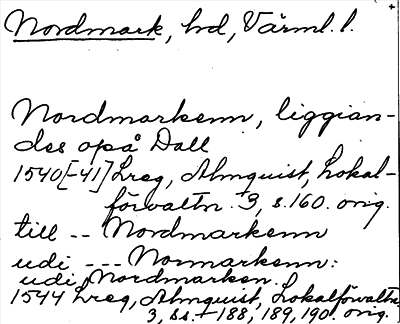 Nordmark, hd, Värml. l.
Nordmarkenn, liggian-
des opå Dall
1540[-41] Lreg, Almquist, Lokal-
förvaltn. 3, s. 160. orig.
till -- Nordmarkenn
udi --- Normarkenn:
udi Nordmarken.
1544 Lreg, Almquist, Lokalförvaltn
3, ss. 188, 189, 190. orig.